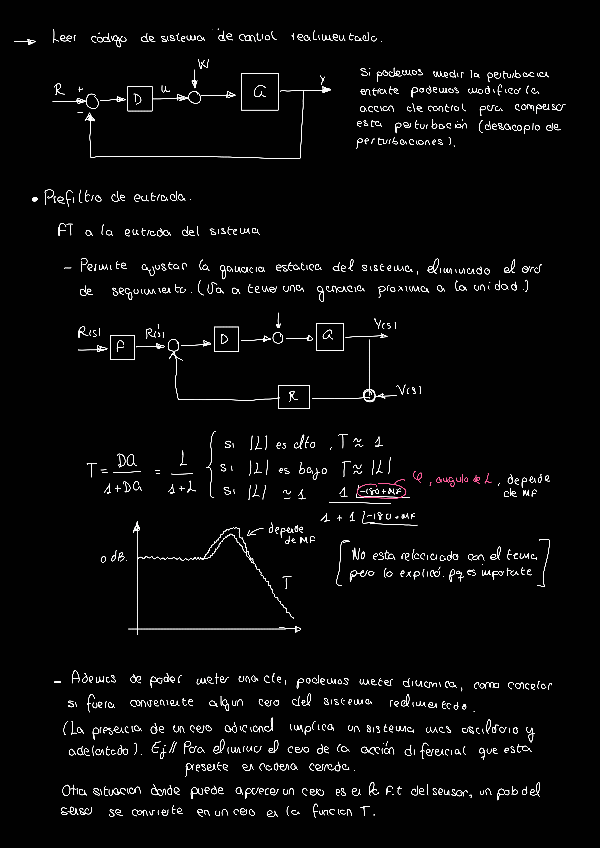 → Leer código de sistema de control realimentado.
W
R + - D u G Y
Si podemos medir la perturbación
entrate podemos modificar la
acción de control para compensar
esta perturbación (desacoplo de
perturbaciones).
• Prefiltro de entrada.
FT a la entrada del sistema
- Permite ajustar la ganacia estatica del sistema, eliminado el error
de seguimiento. (Va a tener una ganacia proxima a la unidad.)
R(s) F R'(s) D G Y(s)
R V(s)
T = DG / 1+DG = L / 1+L
si |L| es alto, T ≈ 1
si |L| es bajo T ≈ |L|
si |L| ≈ 1 1 |-180+MF / 1 + 1 |-180+MF
φ, angulo de L, depende
de MF
depende
de MF
0 dB.
T
[No esta relaciciado con el tema
pero lo explicó. pq es impotate]
- Ademas de poder meter una cte, podemos meter dinamica, como cancelar
si fuera conveniente algun cero del sistema realimentado.
(La presencia de un cero adicional implica un sistema mas oscilatorio y
adelantado). Ej// Para eliminar el cero de la acción diferencial que esta
presente en cadena cerrada.
Otra situacion donde puede aparecer un cero es en la F.t del sensor, un polo del
sensor se convierte en un cero en la funcion T.